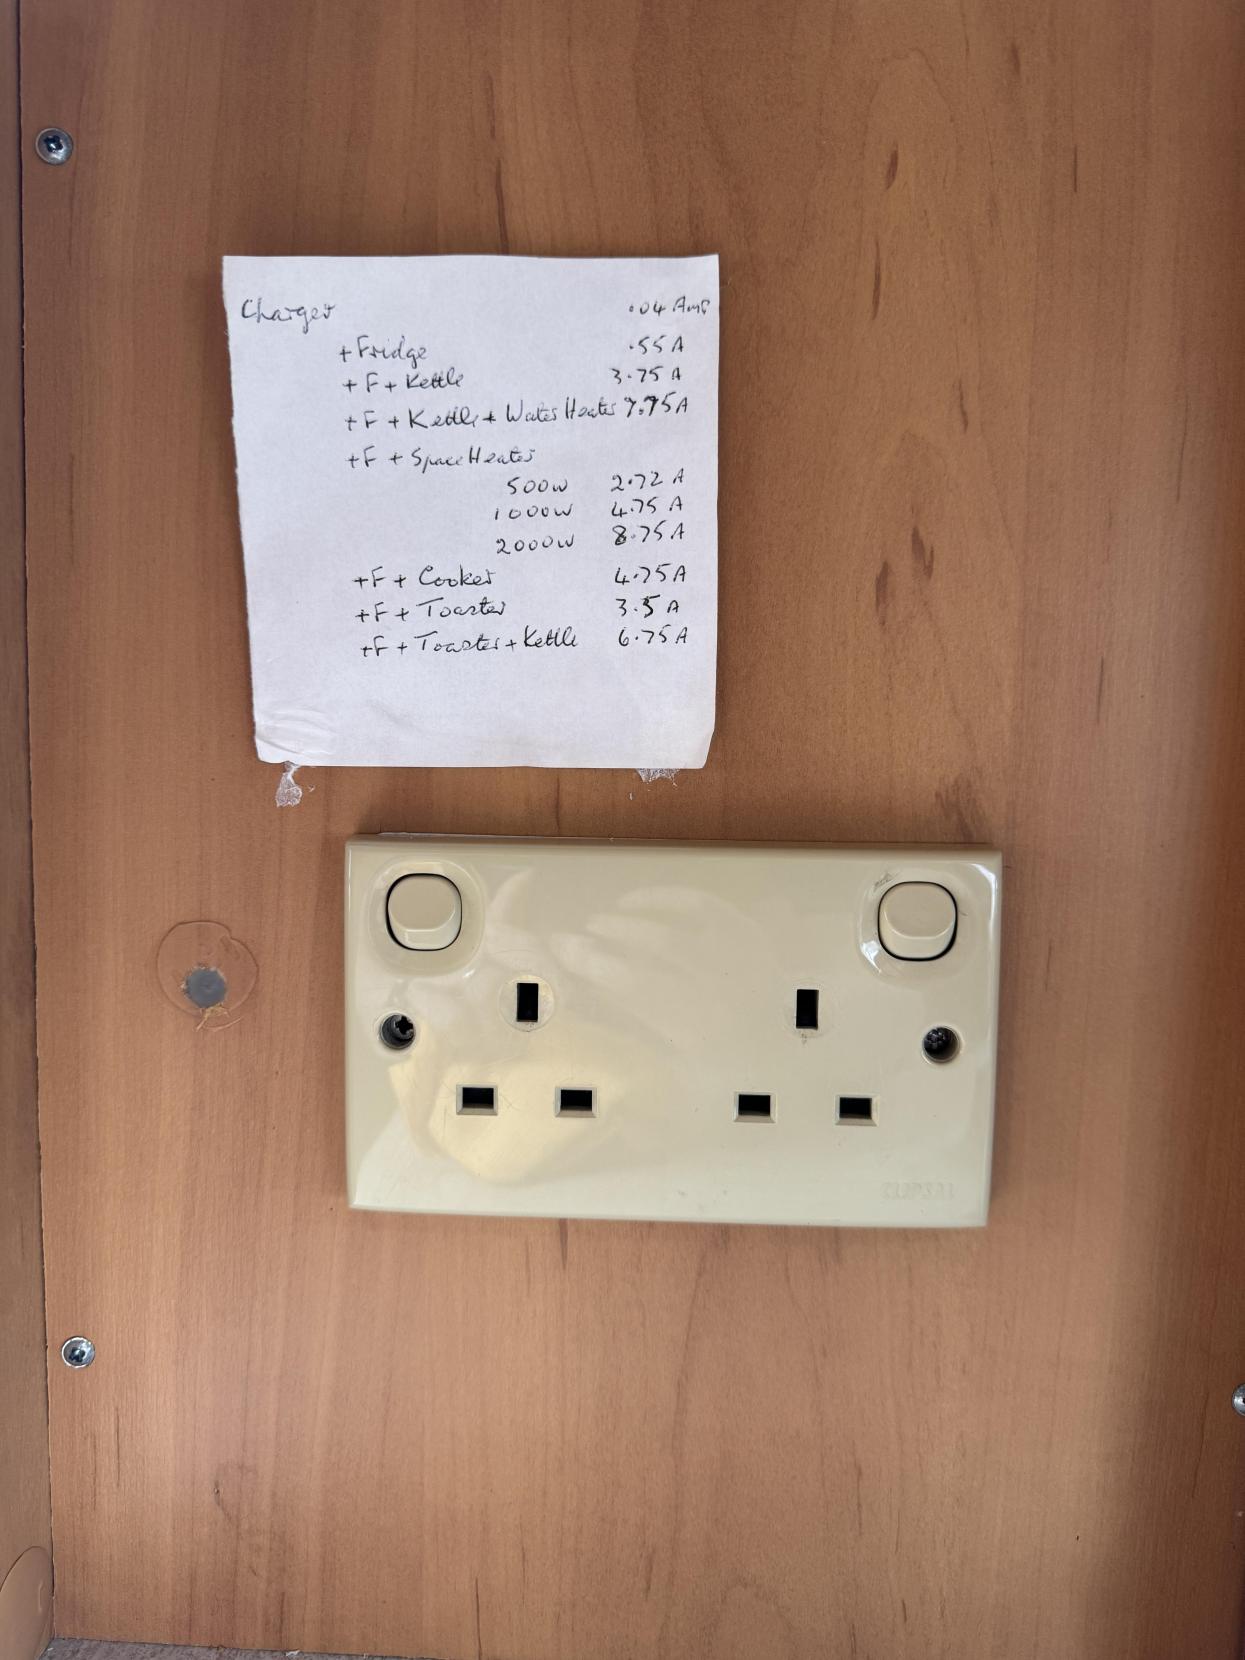 Charger .04 Amp
+ Fridge .55 A
+ F + Kettle 3.75 A
+ F + Kettle + Water Heater 7.75 A
+ F + Space Heater
500w 2.72 A
1000w 4.75 A
2000w 8.75 A
+F + Cooker 4.75 A
+F + Toaster 3.5 A
+F + Toaster + Kettle 6.75 A
CLIPSAL